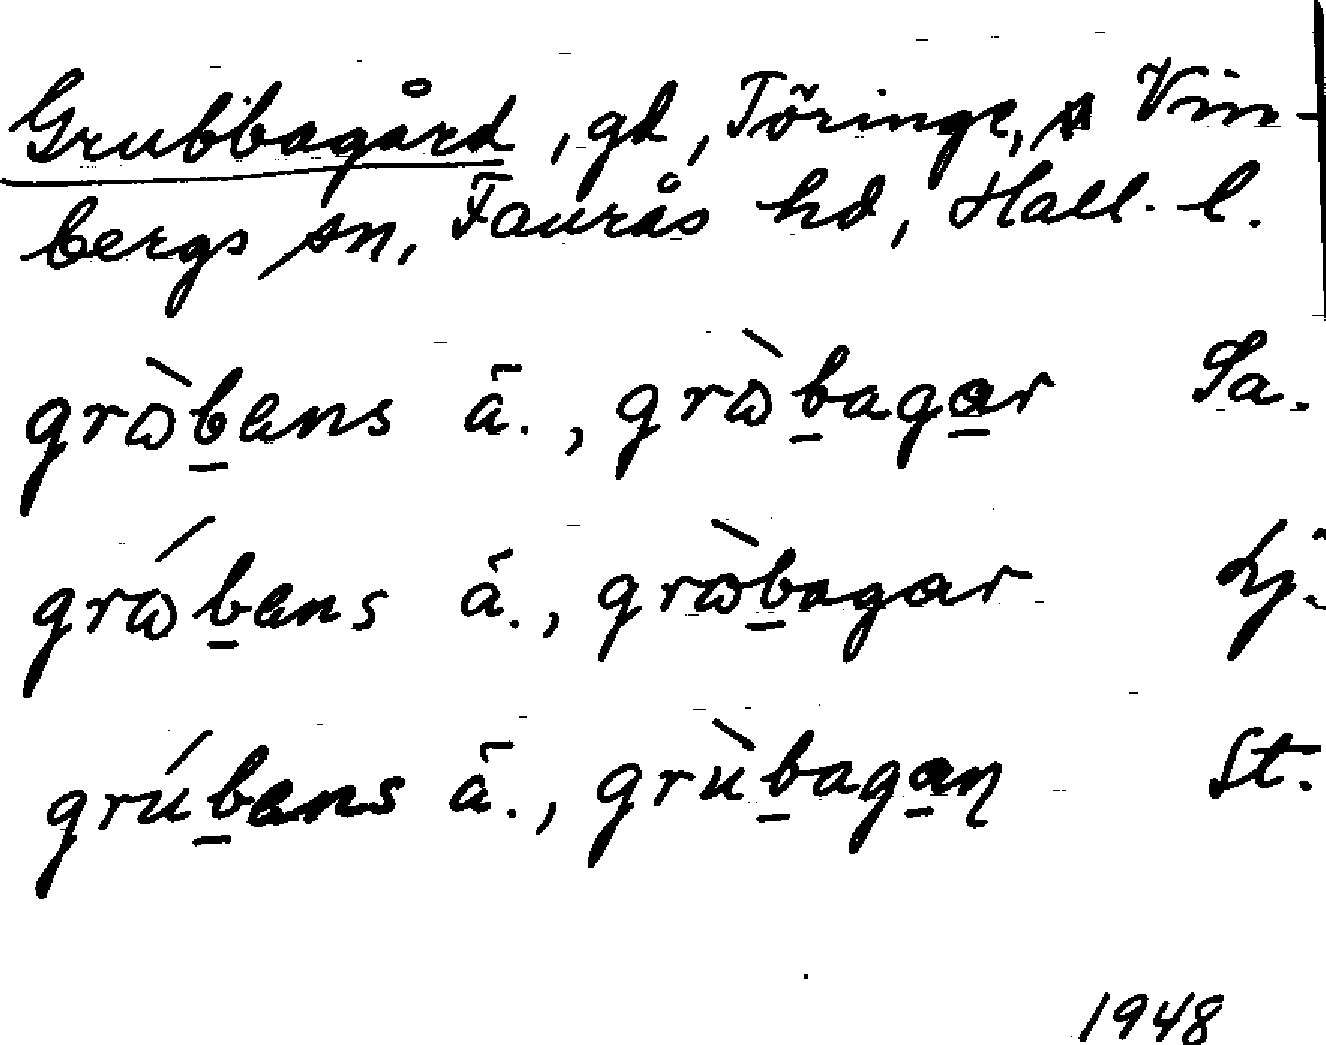 Grubbagård, gd, Töringe, Vin-
bergs sn, Faurås hd, Hall. l.
grɷ̀b̲ans ā., grɷ̀b̲aga̲r Sa.
grɷ́b̲ans ā., grɷ̀b̲agar Lj.
grúb̲ans ā., grùb̲aga̲ɳ St.
1948